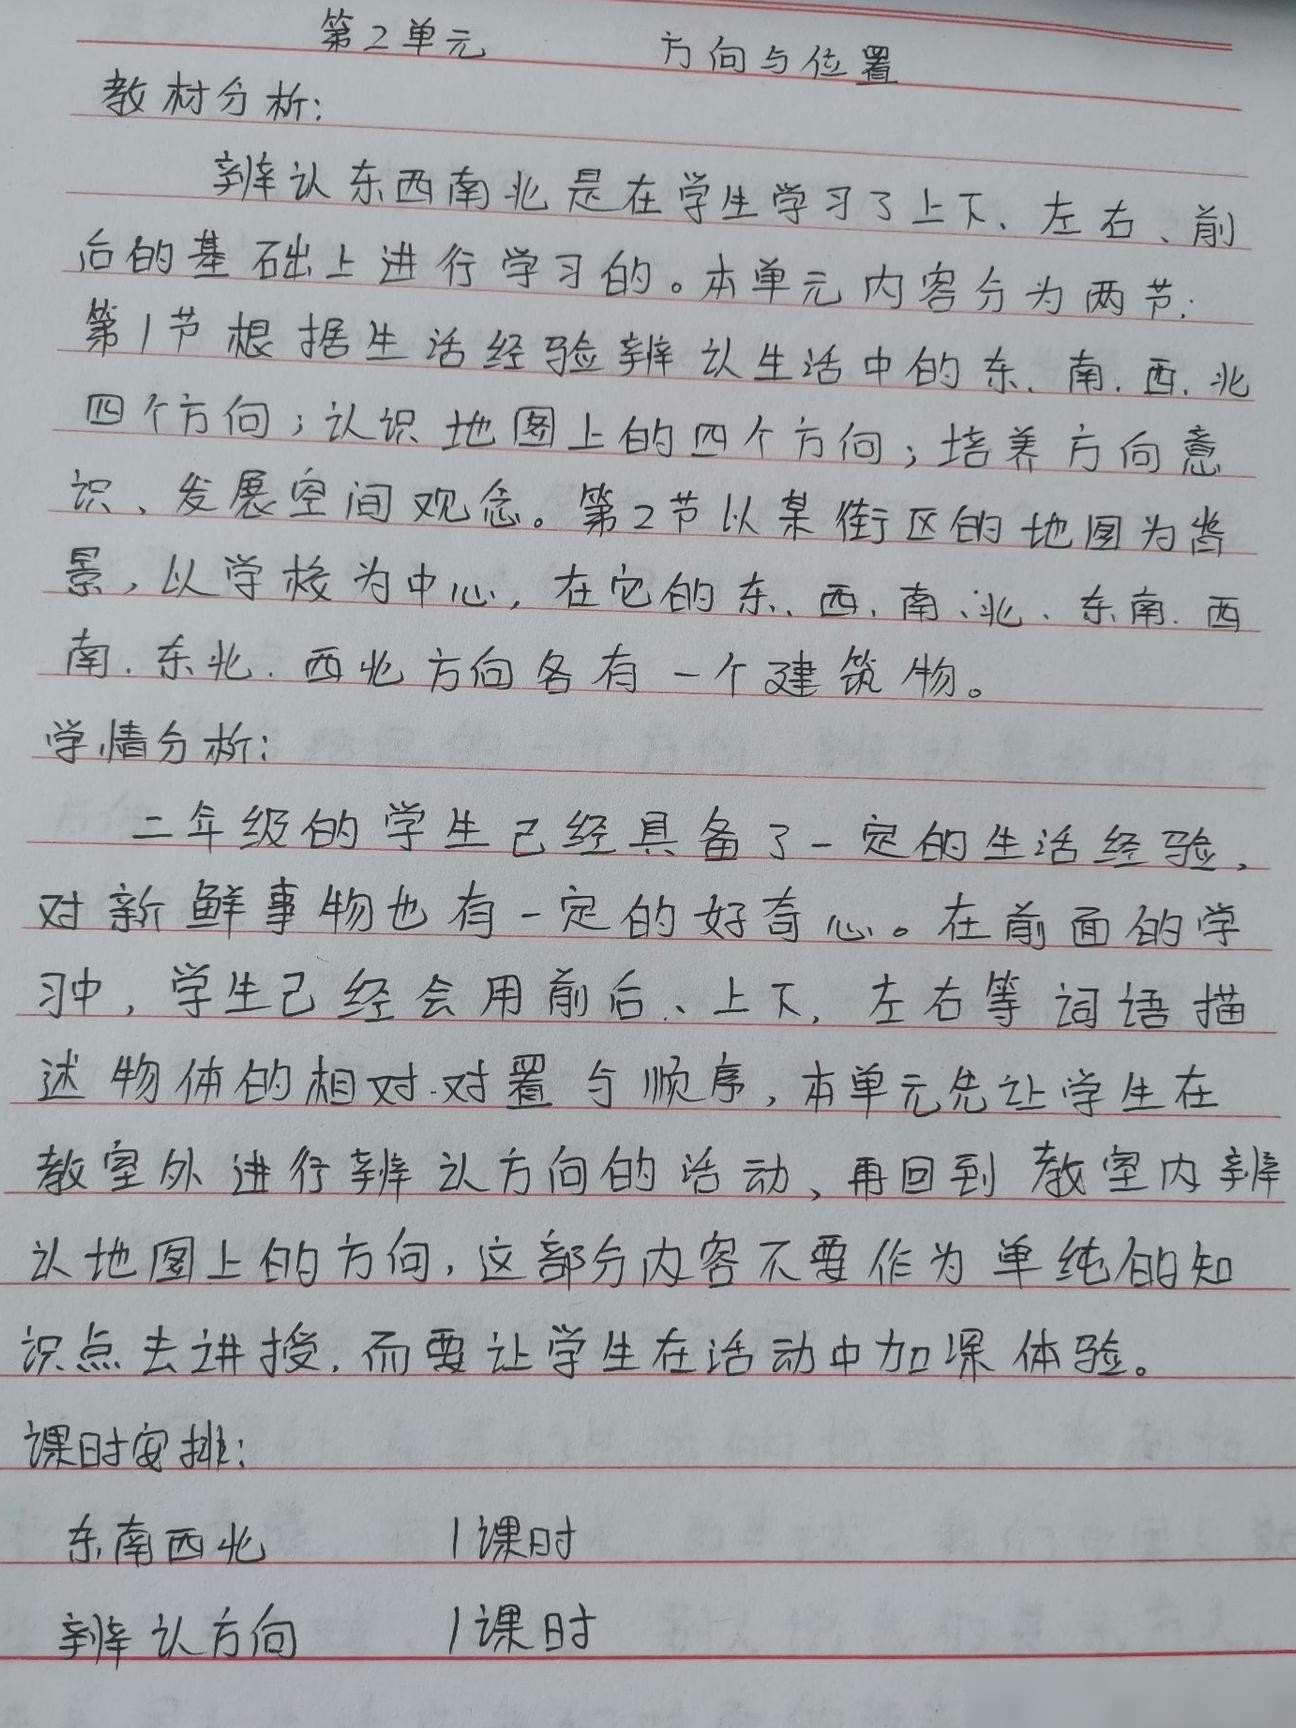 第2单元 方向与位置
教材分析：
辨认东西南北是在学生学习了上下、左右、前
后的基础上进行学习的。本单元内容分为两节：
第1节根据生活经验辨认生活中的东、南、西、北
四个方向；认识地图上的四个方向；培养方向意
识、发展空间观念。第2节以某街区的地图为背
景，以学校为中心，在它的东、西、南、北、东南、西
南、东北、西北方向各有一个建筑物。
学情分析：
二年级的学生已经具备了一定的生活经验，
对新鲜事物也有一定的好奇心。在前面的学
习中，学生已经会用前后、上下，左右等词语描
述物体的相对对置与顺序，本单元先让学生在
教室外进行辨认方向的活动，再回到教室内辨
认地图上的方向，这部分内容不要作为单纯的知
识点去讲授，而要让学生在活动中加深体验。
课时安排：
东南西北 1课时
辨认方向 1课时